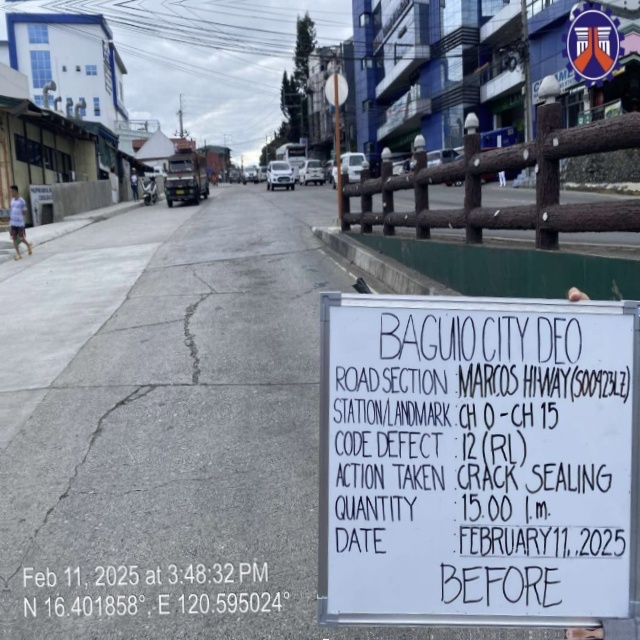 BAGUIO CITY DEO
ROAD SECTION : MARCOS HIWAY (S00923LZ)
STATION/LANDMARK : CH 0 - CH 15
CODE DEFECT : 12 (RL)
ACTION TAKEN : CRACK SEALING
QUANTITY : 15.00 l.m.
DATE : FEBRUARY 11, 2025
BEFORE
Feb 11, 2025 at 3:48:32 PM
N 16.401858°, E 120.595024°